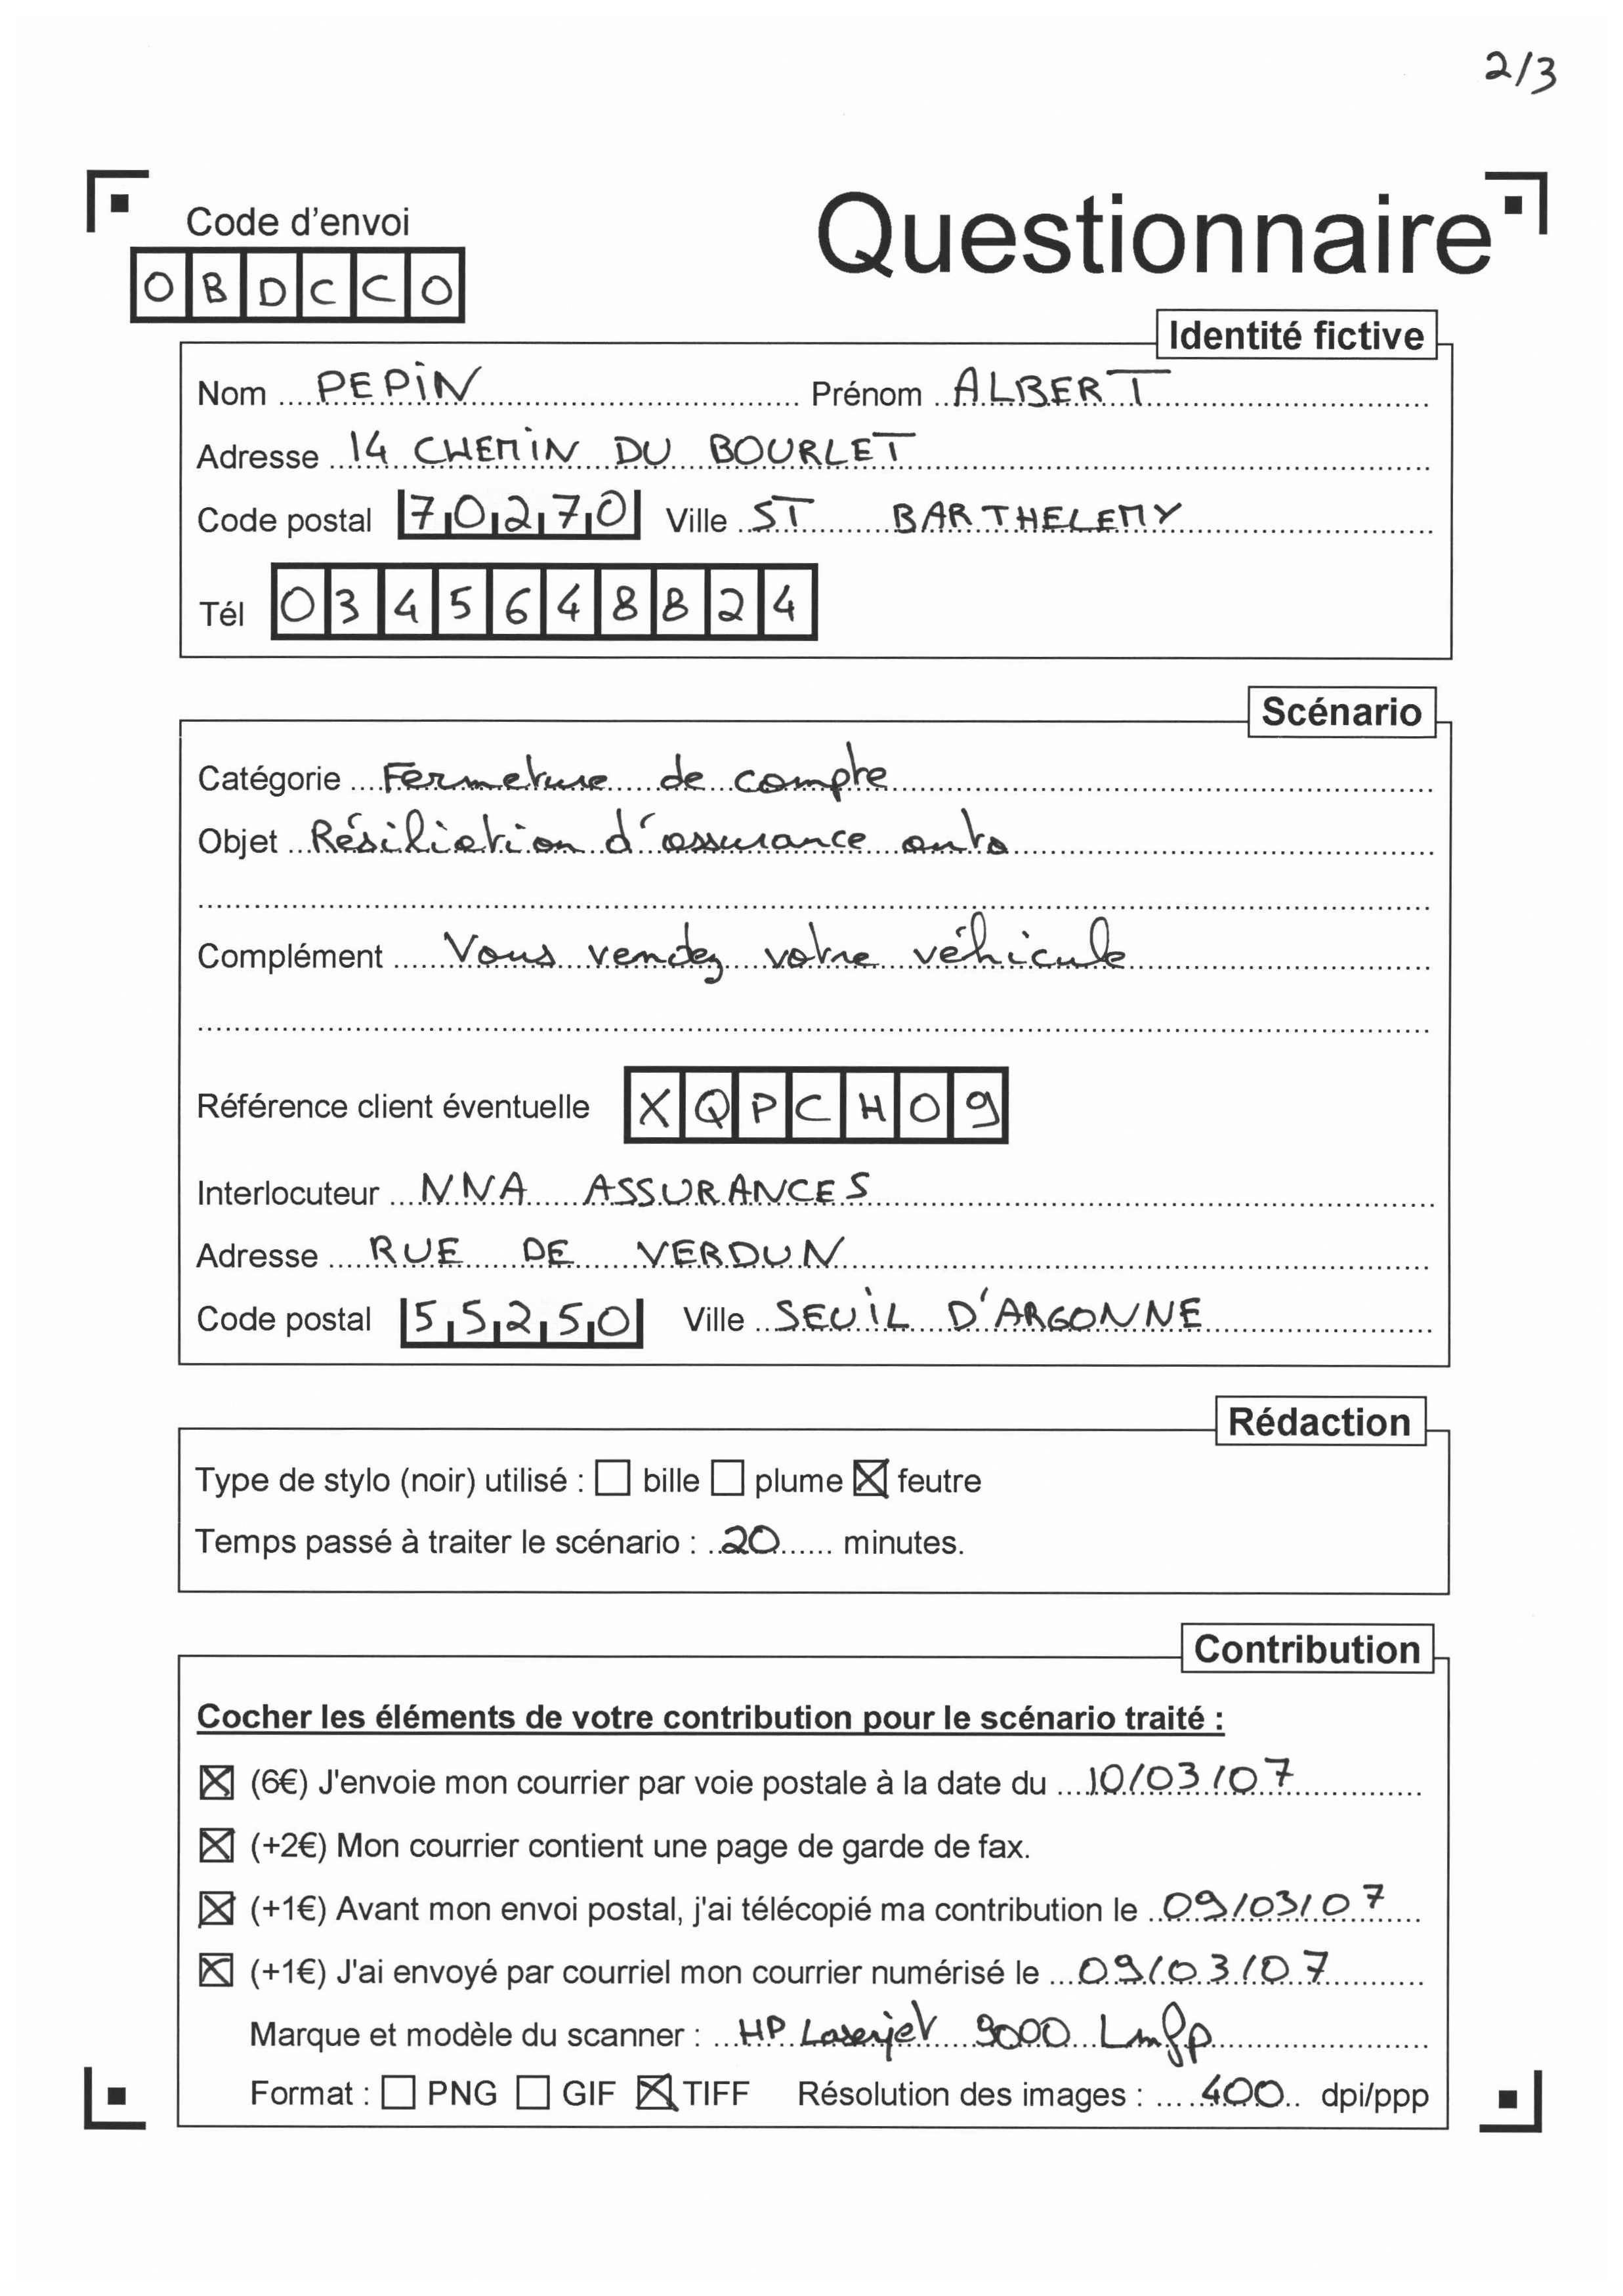 2/3
Code d'envoi
OBDCCO
Questionnaire
Identité fictive
Nom PEPIN Prénom ALBERT
Adresse 14 CHEMIN DU BOURLET
Code postal 70270 Ville ST BARTHELEMY
Tél 0345648824
Scénario
Catégorie Fermeture de compte
Objet Résiliation d'assurance auto
Complément Vous vendez votre véhicule
Référence client éventuelle XQPCH09
Interlocuteur NNA ASSURANCES
Adresse RUE DE VERDUN
Code postal 55250 Ville SEUIL D'ARGONNE
Rédaction
Type de stylo (noir) utilisé : ☐ bille ☐ plume ☒ feutre
Temps passé à traiter le scénario : 20 minutes.
Contribution
Cocher les éléments de votre contribution pour le scénario traité :
☒ (6€) J'envoie mon courrier par voie postale à la date du 10/03/07
☒ (+2€) Mon courrier contient une page de garde de fax.
☒ (+1€) Avant mon envoi postal, j'ai télécopié ma contribution le 09/03/07
☒ (+1€) J'ai envoyé par courriel mon courrier numérisé le 09/03/07
Marque et modèle du scanner : HP Laserjet 9000 Lmfp
Format : ☐ PNG ☐ GIF ☒ TIFF Résolution des images : 400 dpi/ppp